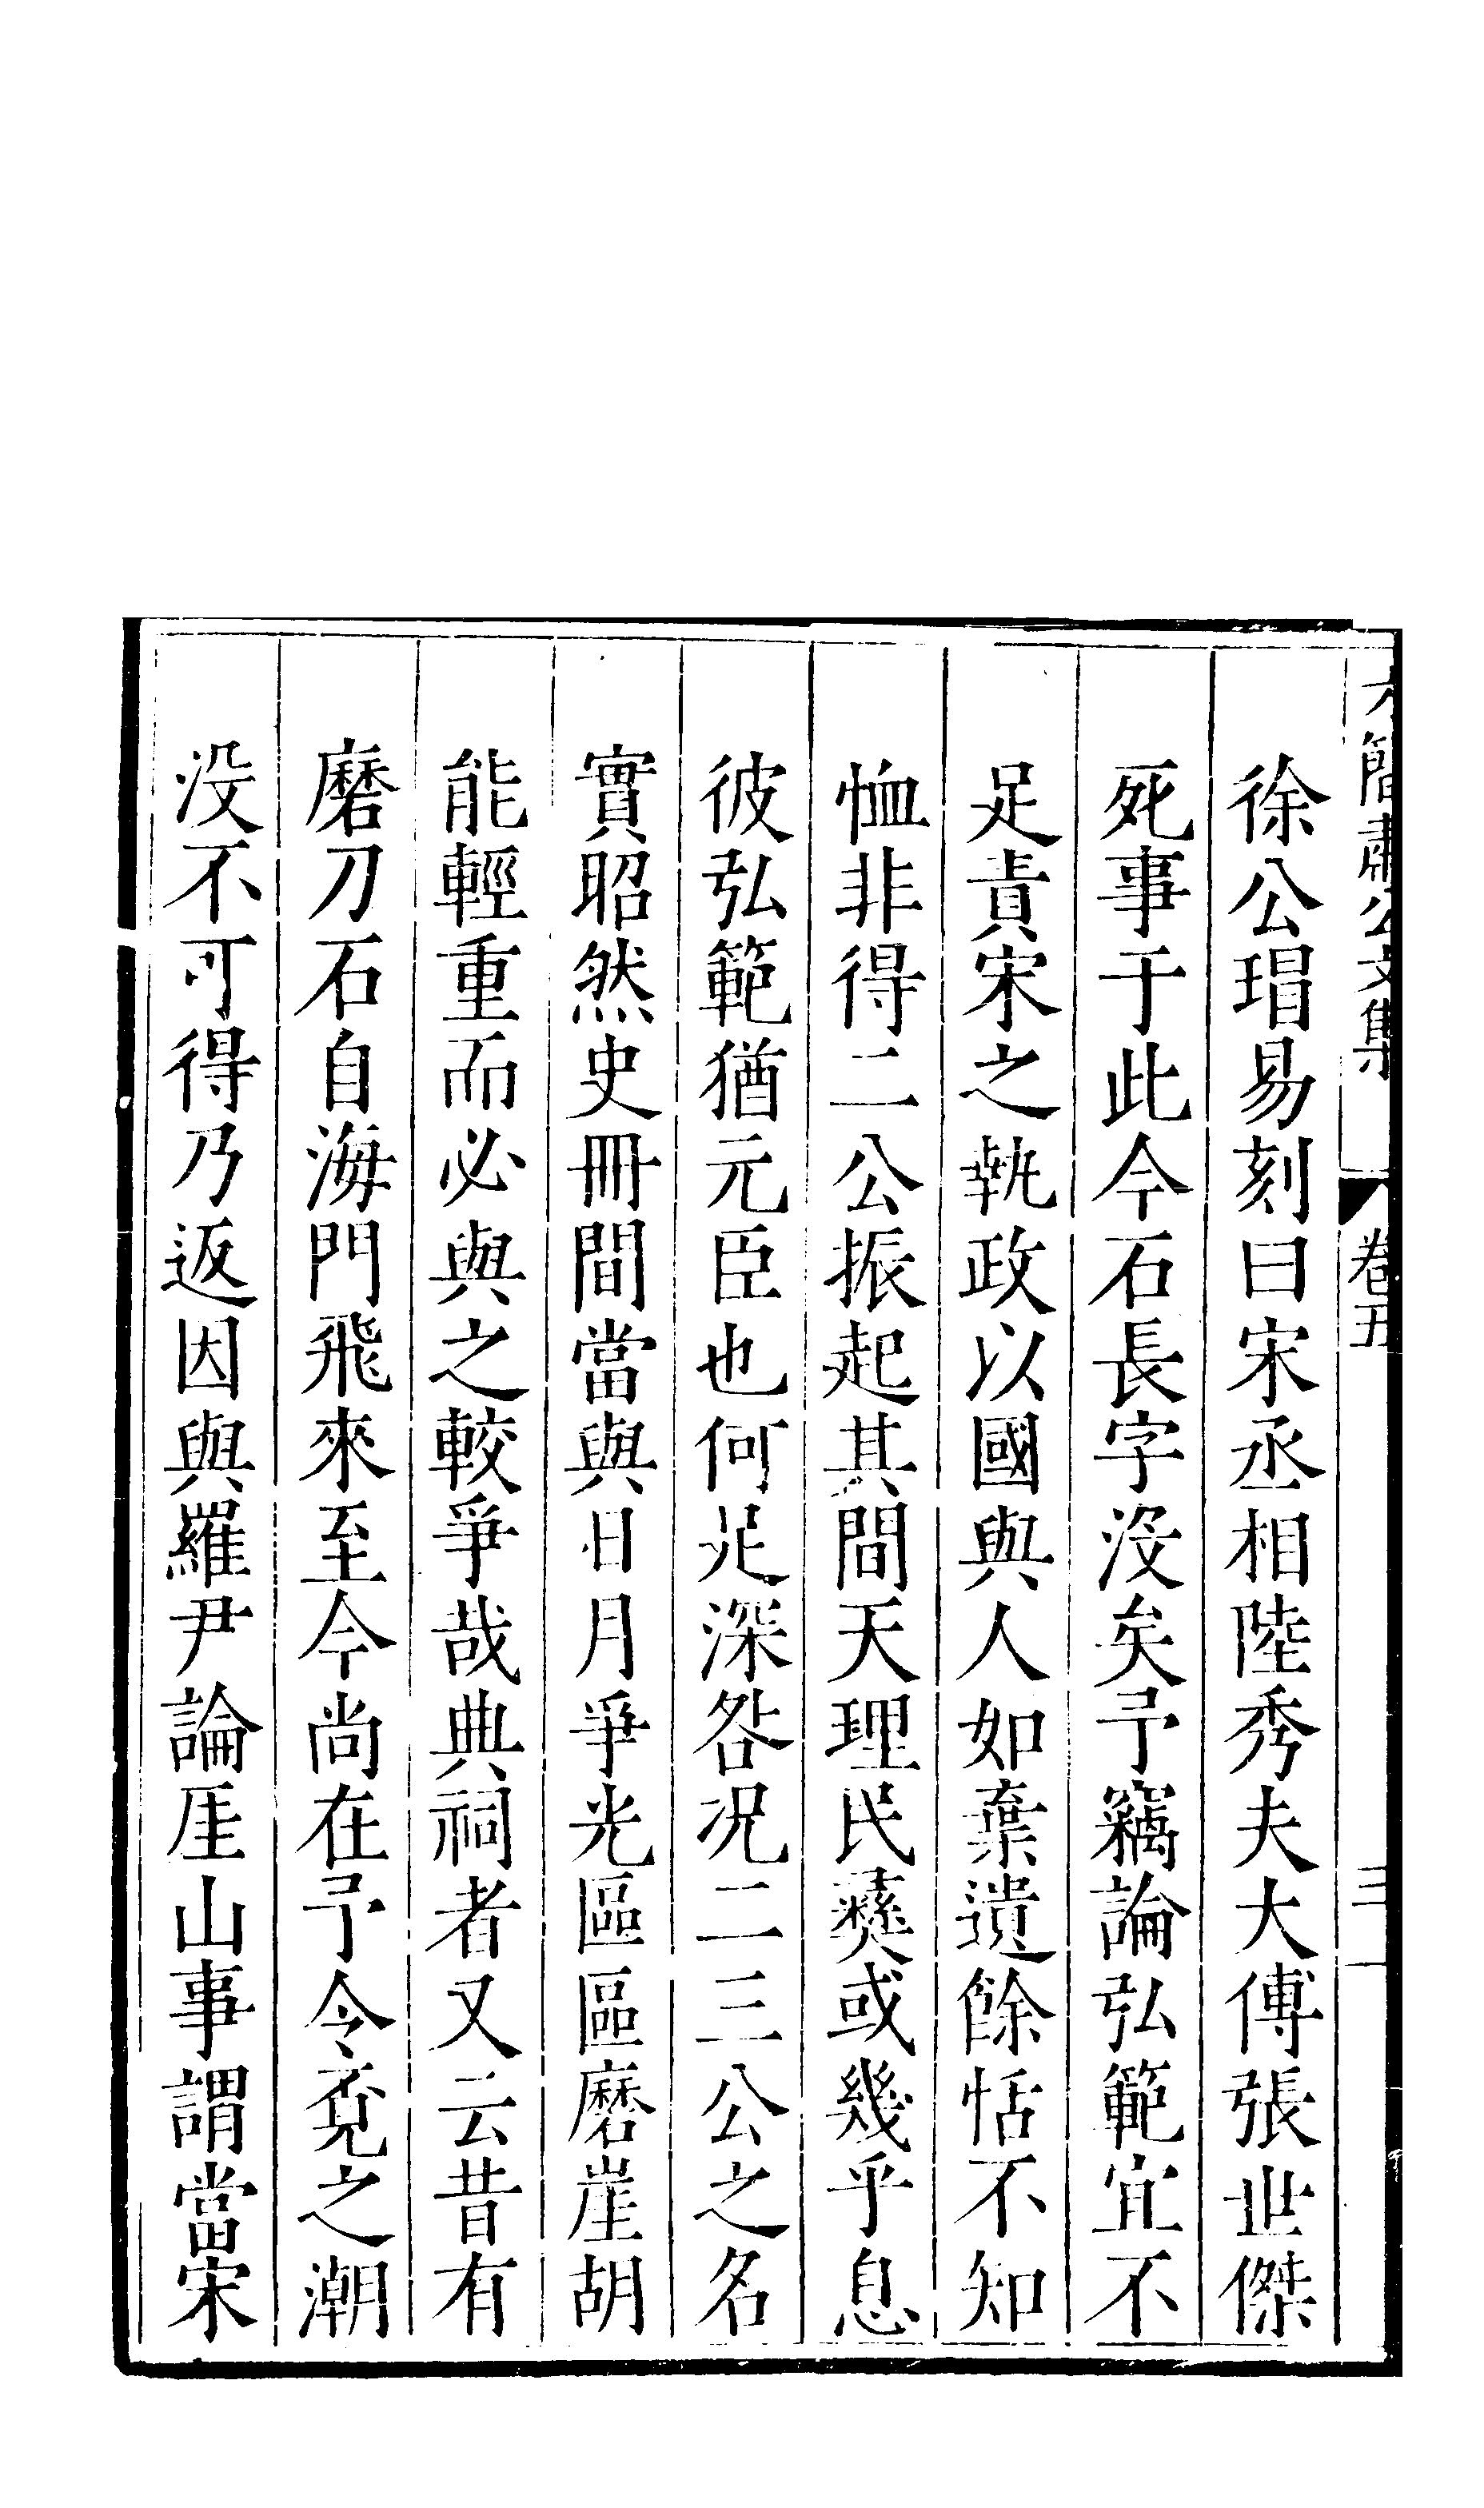 簡肅公文集
卷五
徐公瑁易刻曰宋丞相陸秀夫大傅張世傑
死事于此今石長字沒矣予竊論弘範宜不
足責宋之執政以國與人如棄遺餘恬不知
恤非得二公振起其間天理民彝或幾乎息
彼弘範猶元臣也何足深咎况二三公之名
實昭然史冊間當與日月爭光區區磨崖胡
能輕重而必與之較爭哉典祠者又云昔有
磨刀石自海門飛來至今尚在予令覔之潮
没不可得乃返因與羅尹論厓山事謂當宋